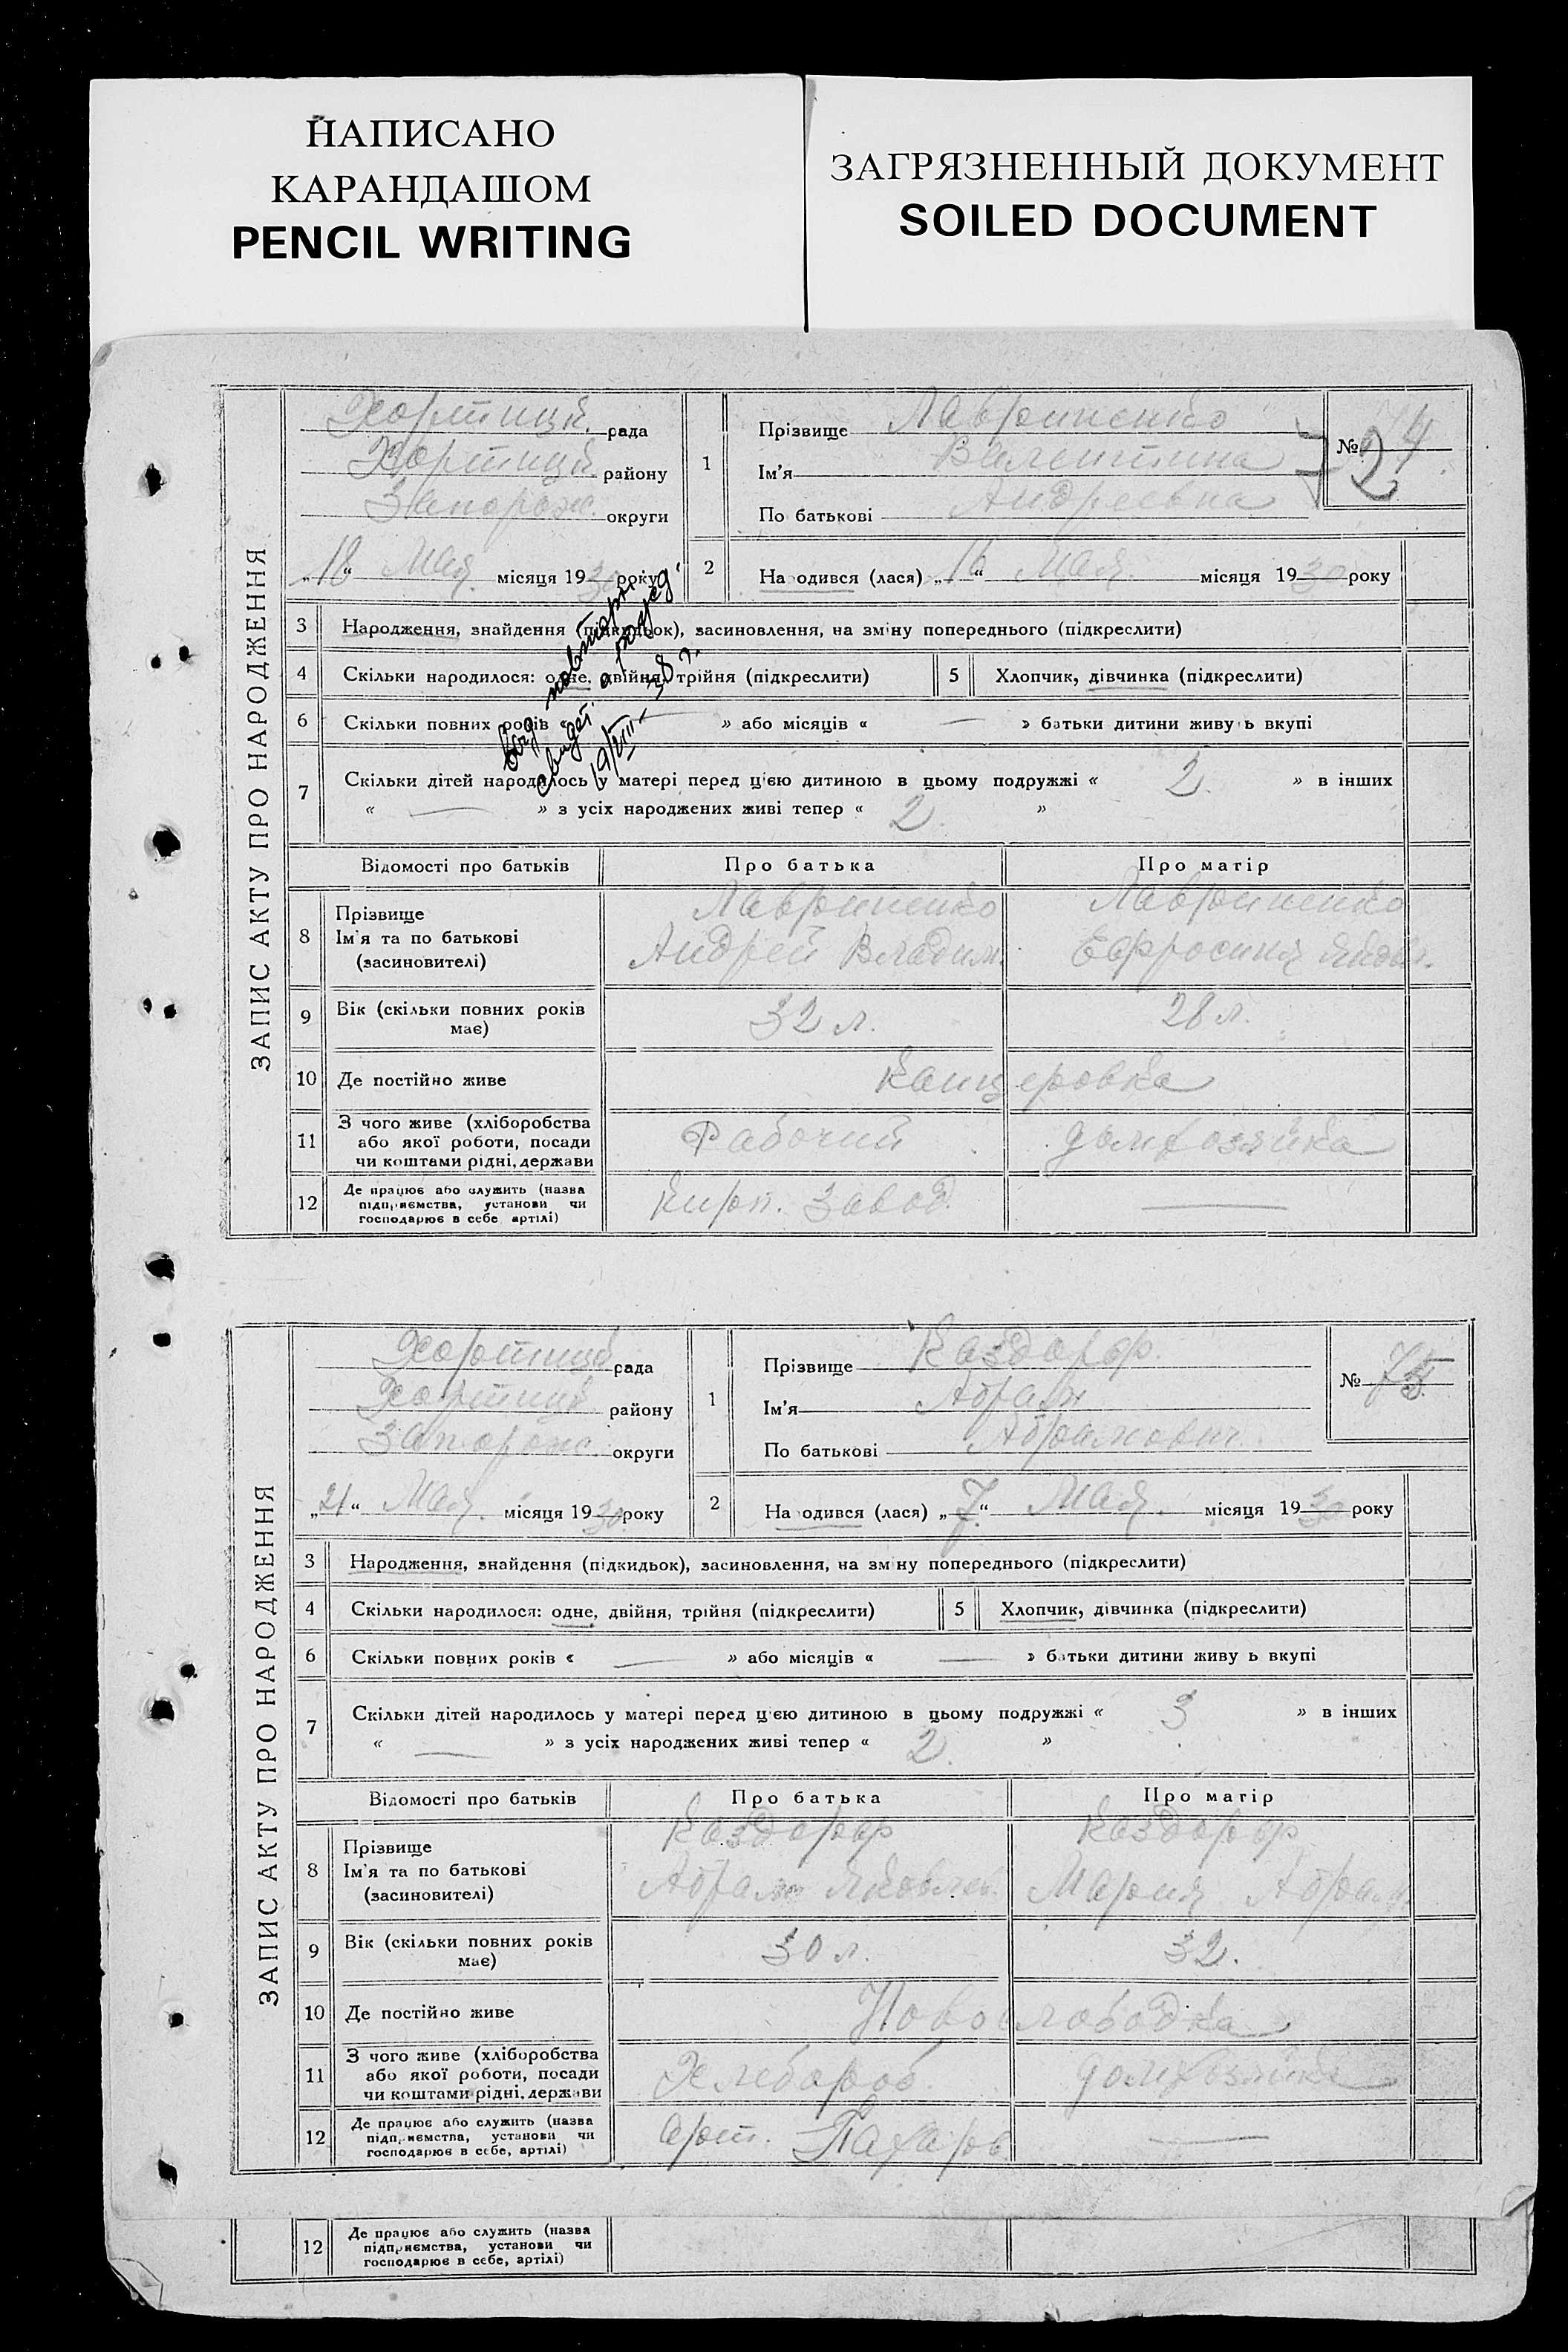 НАПИСАНО
КАРАНДАШОМ
PENCIL WRITING
ЗАГРЯЗНЕННЫЙ ДОКУМЕНТ
SOILED DOCUMENT
ЗАПИС АКТУ ПРО НАРОДЖЕННЯ
Хортицк. рада
Хортицк району
Запорож. округи
„18“ Мая місяця 1930 року
1 Прізвище Лавриненко
Ім'я Валентина
По батькові Андреевна
№ 74
2
2 На одився (лася) „16“ Мая місяця 1930 року
3 Народження, знайдення (підкидьок), засиновлення, на зміну попереднього (підкреслити)
4 Скільки народилося: одне, двійня, трійня (підкреслити) 5 Хлопчик, дівчинка (підкреслити)
6 Скільки повних років « — » або місяців « — » батьки дитини живуть вкупі
7 Скільки дітей народилось у матері перед цією дитиною в цьому подружжі « 2. » в інших
« — » з усіх народжених живі тепер « 2. »
19/VIII - 38 г.
Відомості про батьків Про батька Про матір
8 Прізвище Ім'я та по батькові (засновителі)
Лавриненко Лавриненко
Андрей Владим. Ефросиния Яковл.
9 Вік (скільки повних років має) 32 л. 28 л.
10 Де постійно живе Канцеровка
11 З чого живе (хліборобства або якої роботи, посади чи коштами рідні, держави Рабочий домхозяйка
12 Де працює або служить (назва підприємства, установи чи господарює в себе артілі) Кирп. завод. —
ЗАПИС АКТУ ПРО НАРОДЖЕННЯ
Хортицк рада
Хортицк району
Запорож. округи
„21“ Мая місяця 1930 року
1 Прізвище Каздорф.
Ім'я Абрам
По батькові Абрамович
№ 75
2 На одився (лася) „7“ Мая місяця 1930 року
3 Народження, знайдення (підкидьок), засиновлення, на зм ну попереднього (підкреслити)
4 Скільки народилося: одне, двійня, трійня (підкреслити) 5 Хлопчик, дівчинка (підкреслити)
6 Скільки повних років « — » або місяців « — » батьки дитини живу ь вкупі
7 Скільки дітей народилось у матері перед цією дитиною в цьому подружжі « 3 » в інших
« — » з усіх народжених живі тепер « 2. »
Відомості про батьків Про батька Про матір
8 Прізвище Ім'я та по батькові (засиновителі)
Каздорф Каздорф
Абрам Яковлев. Мария Абрам
9 Вік (скільки повних років має) 30 л. 32.
10 Де постійно живе Новослободка
11 З чого живе (хліборобства або якої роботи, посади чи коштами рідні, держави Хлебороб домхозяйка
12 Де працює або служить (назва підприємства, установи чи господарює в себе, артілі) арт. Пахарь —
12 Де працює або служить (назва
підприємства, установи чи
господарює в себе, артілі)